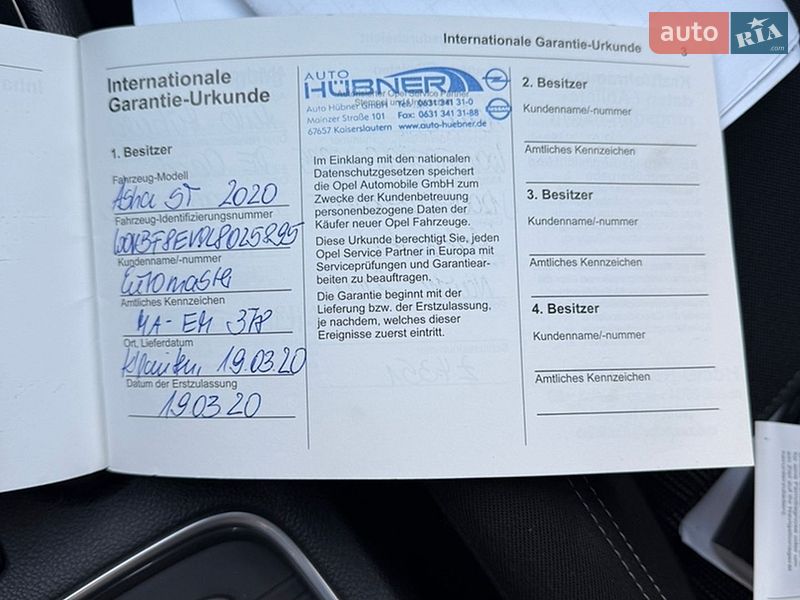 Internationale Garantie-Urkunde
3
auto RIA .com
Internationale
Garantie-Urkunde
1. Besitzer
Fahrzeug-Modell
Astra ST 2020
Fahrzeug-Identifizierungsnummer
Kundenname/-nummer
Euromaster
Amtliches Kennzeichen
MA-EM 378
Ort, Lieferdatum
19.03.20
Datum der Erstzulassung
19 03 20
AUTO
HÜBNER
Auto Hübner GmbH Tel. 0631 341 31-0
Mainzer Straße 101 Fax: 0631 341 31-88
67657 Kaiserslautern www.auto-huebner.de
Im Einklang mit den nationalen
Datenschutzgesetzen speichert
die Opel Automobile GmbH zum
Zwecke der Kundenbetreuung
personenbezogene Daten der
Käufer neuer Opel Fahrzeuge.
Diese Urkunde berechtigt Sie, jeden
Opel Service Partner in Europa mit
Serviceprüfungen und Garantiear-
beiten zu beauftragen.
Die Garantie beginnt mit der
Lieferung bzw. der Erstzulassung,
je nachdem, welches dieser
Ereignisse zuerst eintritt.
2. Besitzer
Kundenname/-nummer
Amtliches Kennzeichen
3. Besitzer
Kundenname/-nummer
Amtliches Kennzeichen
4. Besitzer
Kundenname/-nummer
Amtliches Kennzeichen